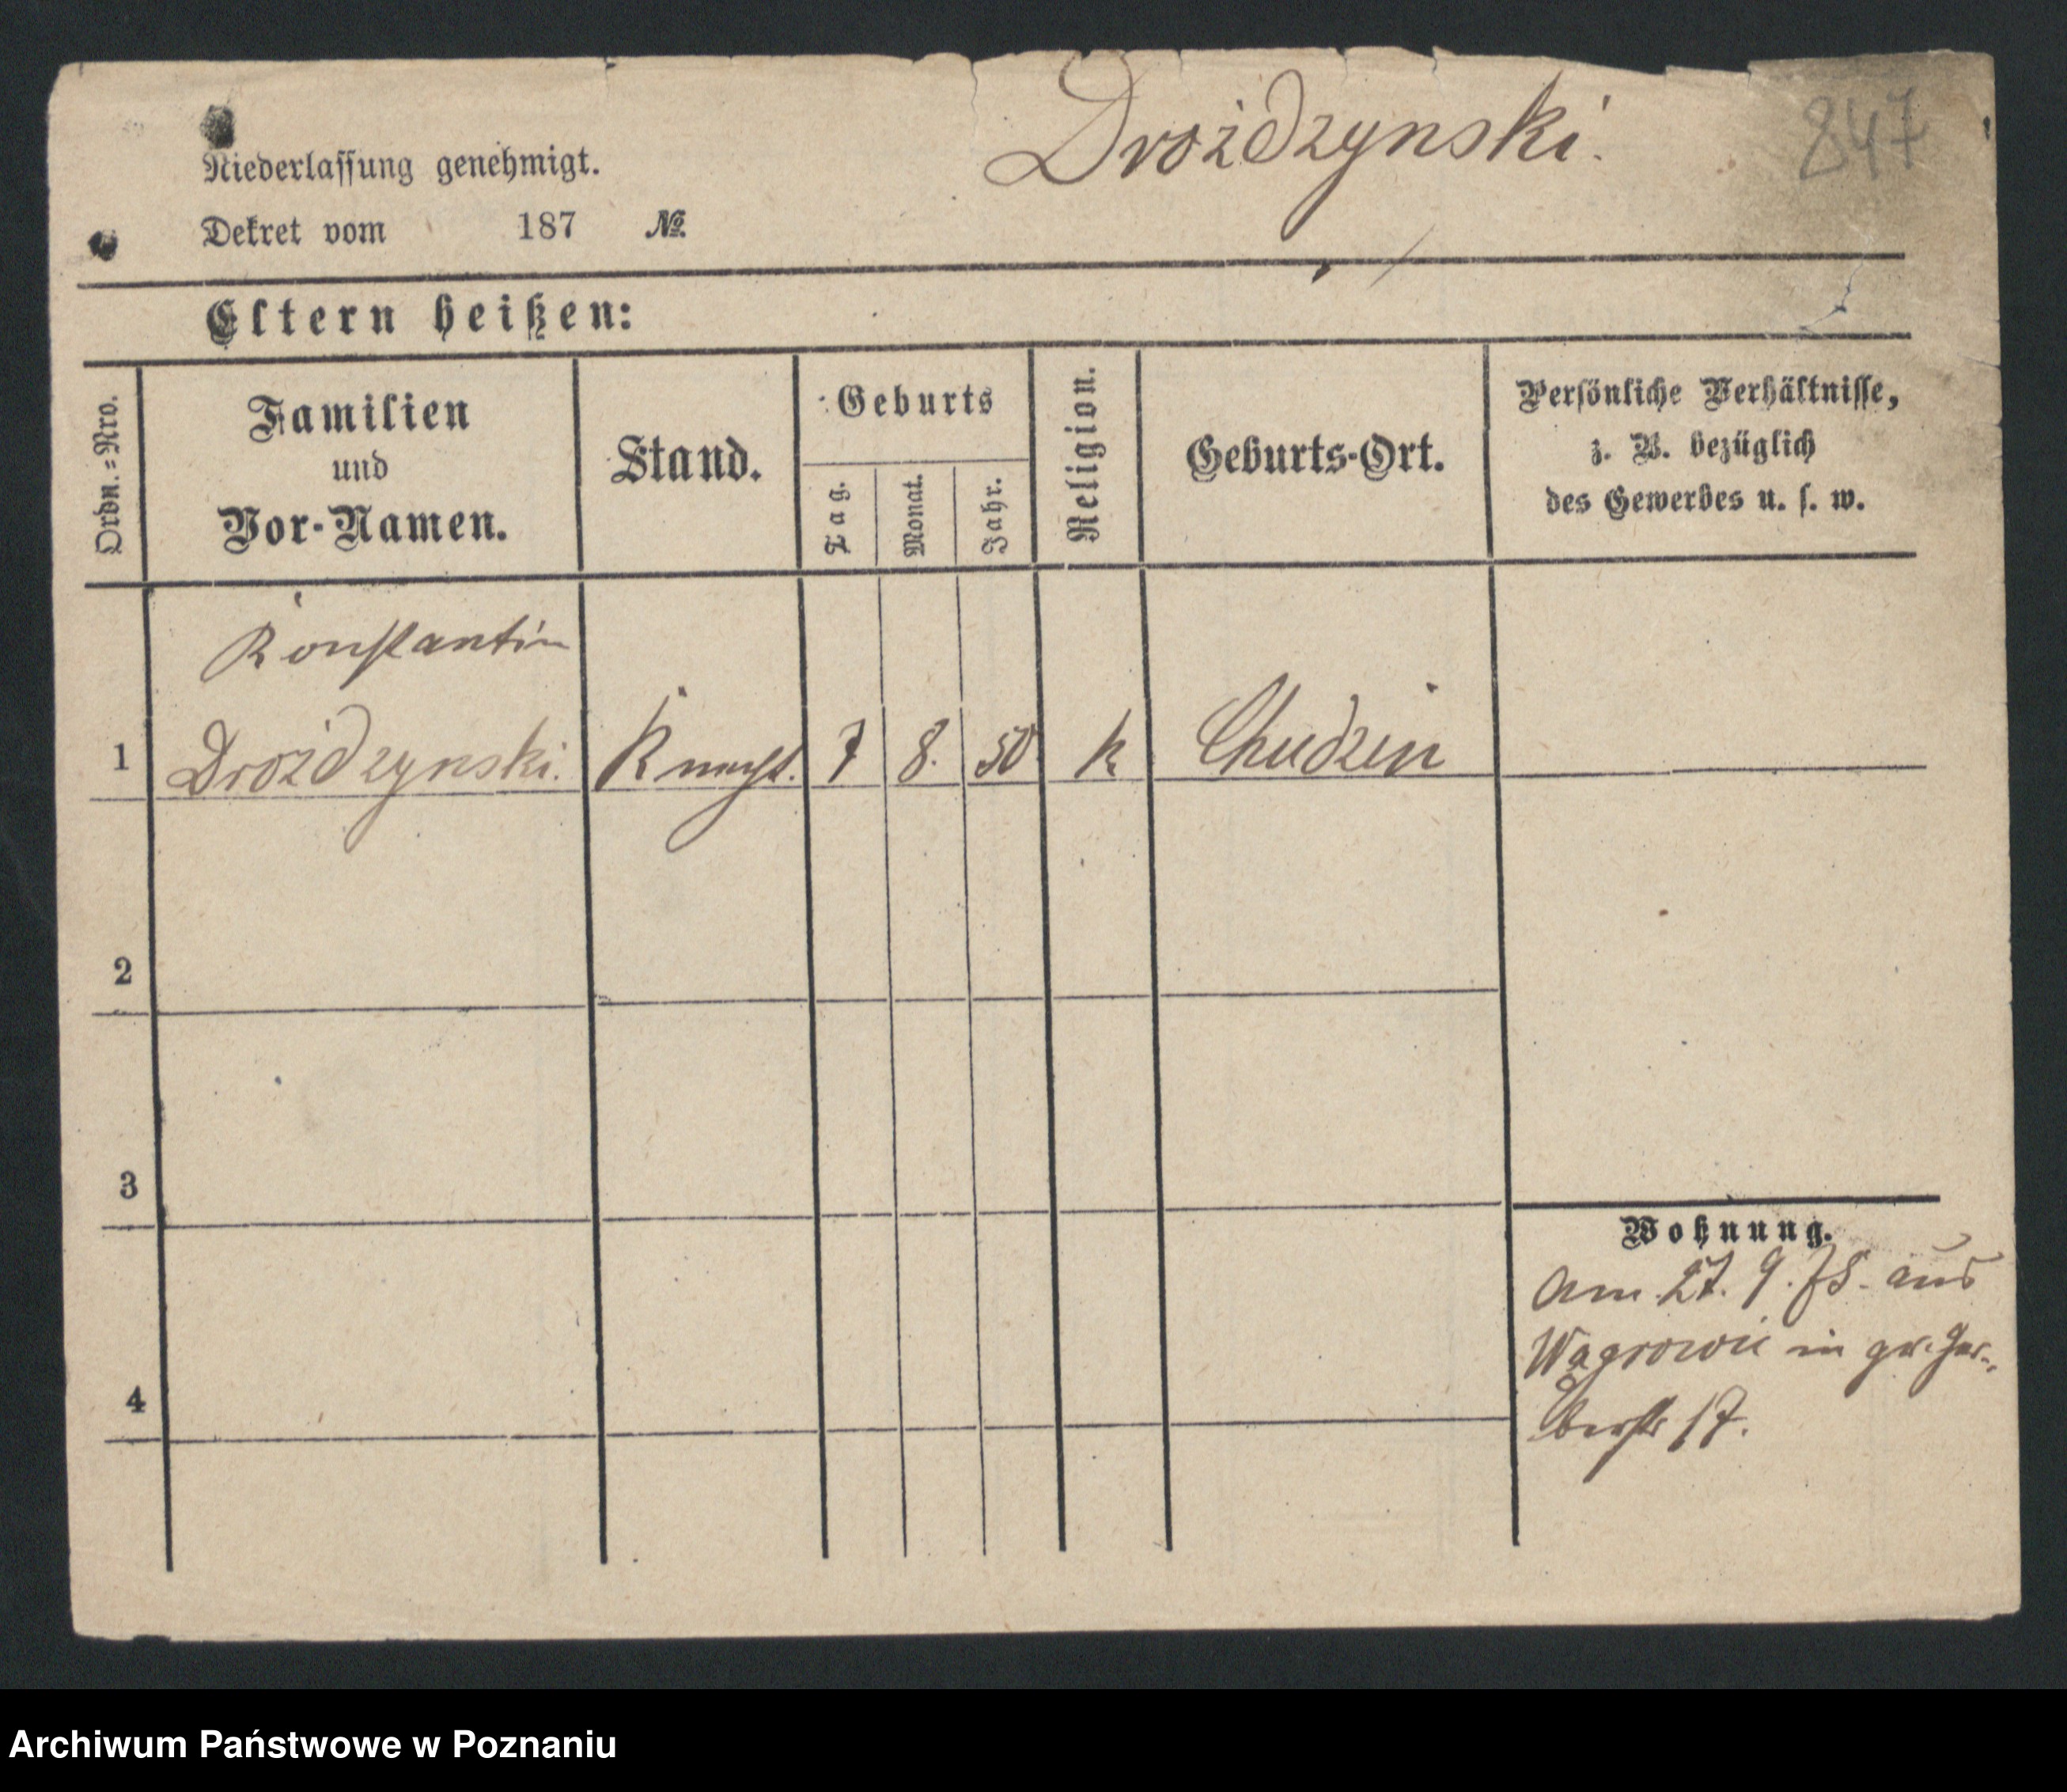 Drożdzynski.
847
Niederlassung genehmigt.
Dekret vom 187 No.
Eltern heißen:
Ordn.=Nro.
Familien
und
Vor-Namen.
Stand.
Geburts
Tag.
Monat.
Jahr.
Religion.
Geburts-Ort.
Persönliche Verhältnisse,
z. B. bezüglich
des Gewerbes u. s. w.
Konstantin
1 Drożdzynski. Knecht. 7 8. 50 k Chudzin
2
3
4
Wohnung.
am 27. 9. 78. aus
Wągrowic in gr. Ger-
berstr 17.
Archiwum Państwowe w Poznaniu